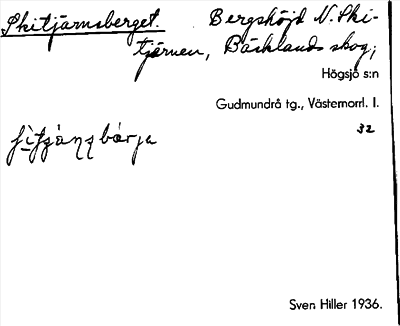 Skitjärnsberget. Bergshöjd N. Ski-
tjärnen, Bäcklands skog,
Högsjö s:n
Gudmundrå tg., Västernorrl. l.
32
Sven Hiller 1936.